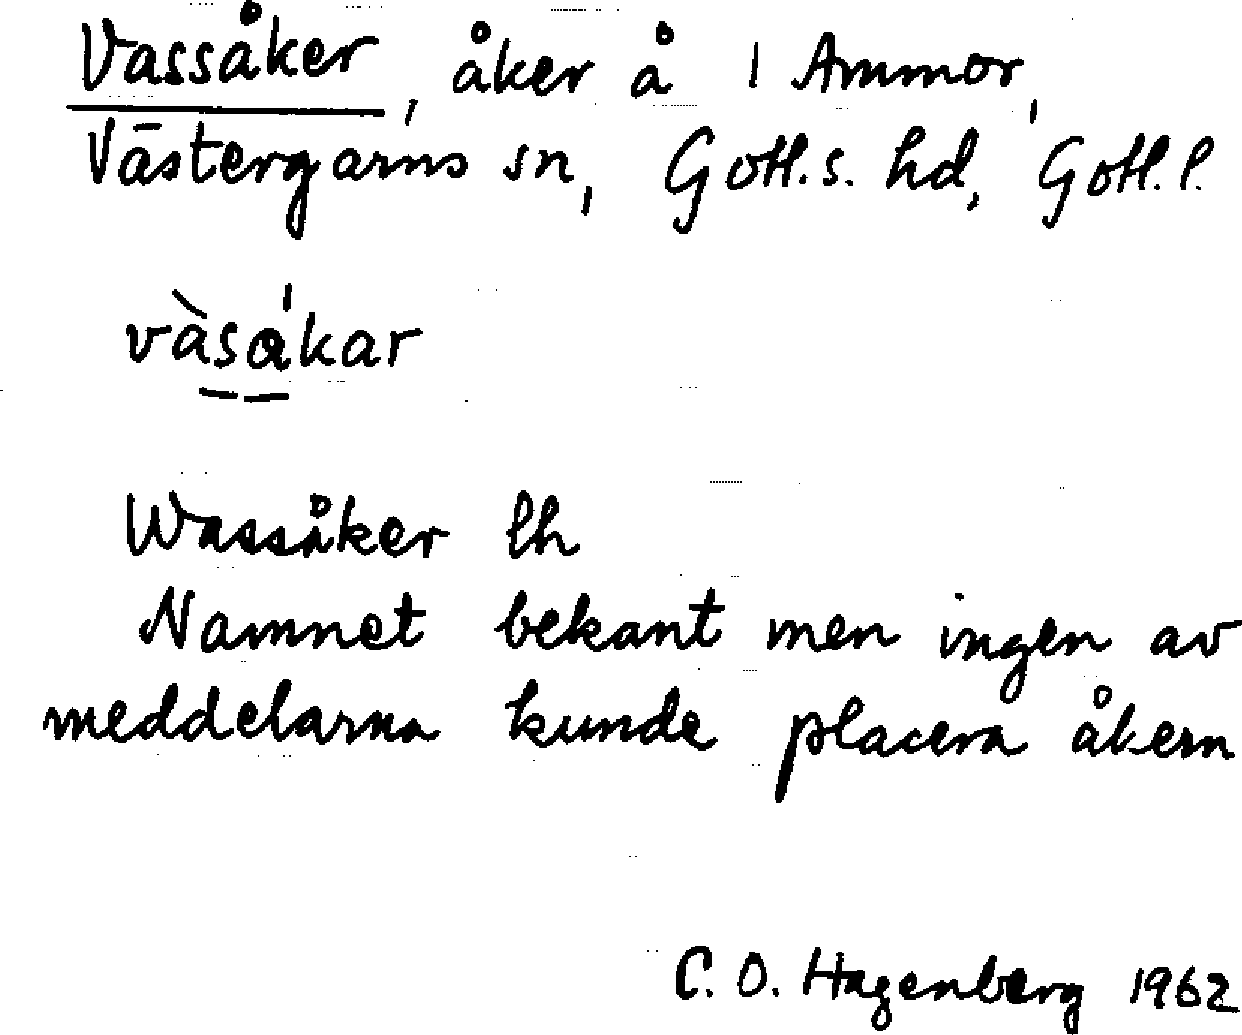 Vassåker, åker å 1 Ammor,
Västergarns sn, Gotl. s. hd, Gotl. l.
vàsákar
Wassåker lh
Namnet bekant men ingen av
meddelarna kunde placera åkern
C. O. Hagenberg 1962